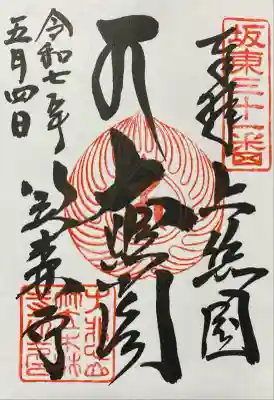 坂東三十一番
奉拝
上総國
大悲閣
笠森寺
令和七年
五月四日